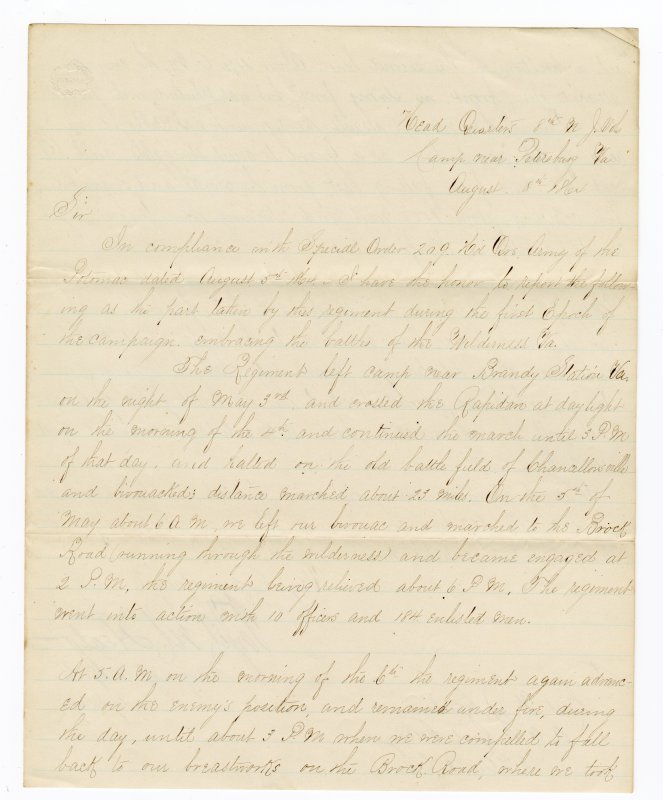 Head Quarters 8th N J Vols
Camp near Petersburg Va
August 8th 1864
Sir:
In compliance with Special Order 209 Hd Qrs Army of the
Potomac dated August 5th 1864, I have the honor to report the follow-
ing as the part taken by this regiment during the first Epoch of
the campaign. embracing the battles of the Wilderness Va.
The Regiment left camp near Brandy Station Va.
on the night of May 3rd and crossed the Rapidan at daylight
on the morning of the 4th and continued the march until 3 P.M
of that day, and halted on the old battle field of Chancellorsville
and bivouacked; distance marched about 23 miles. On the 5th of
May about 6 A M, we left our bivouac and marched to the Brock
Road (running through the wilderness) and became engaged at
2 P.M. the regiment being relieved about 6 P M. The regiment
went into action with 10 officers and 184 enlisted men.
At 5. A. M. on the morning of the 6th the regiment again advanc-
ed on the enemy's position and remained under fire, during
the day, until about 3 P.M when we were compelled to fall
back to our breastworks on the Brock Road, where we took